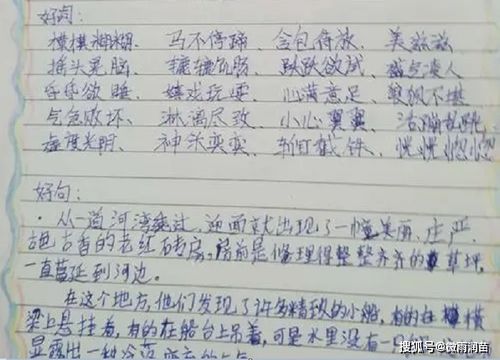 好词:
模模糊糊、马不停蹄、含苞待放、美滋滋
摇头晃脑、辘辘饥肠、跃跃欲试、盛气凌人
昏昏欲睡、嬉戏玩耍、心满意足、狼狈不堪
气急败坏、淋漓尽致、小心翼翼、活蹦乱跳
虚度光阴、神采奕奕、斩钉截铁、恍恍惚惚
好句:
· 从一道河湾绕过,迎面就出现了一幢美丽、庄严、
古色古香的老红砖房,房前是修理得整整齐齐的草坪,
一直蔓延到河边。
在这个地方,他们发现了许多精致的小船,有的在横
梁上悬挂着,有的在船台上吊着,可是水里没有一
显露出一种冷落
搜狐号@微雨润苗